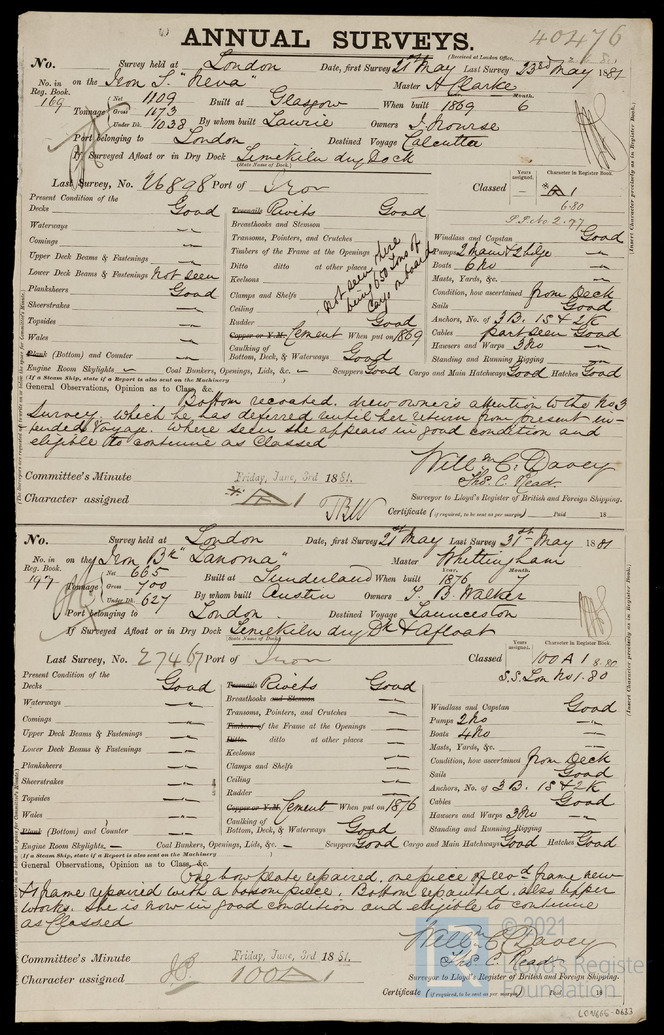 ANNUAL SURVEYS.
40476
(Received at London Office,
No. Survey held at London Date, first Survey 21st May Last Survey 23rd May 1881
No. in Reg. Book. on the Iron S "Neva" Master H Clarke
169 Tonnage Net 1109 Gross 1173 Under Dk. 1038 Built at Glasgow When built 1869 Month. 6
By whom built Laurie Owners J. Nourse
Port belonging to London Destined Voyage Calcutta
If Surveyed Afloat or in Dry Dock Limekiln dry Dock
(State Name of Dock.)
Last Survey, No. 26898 Port of Iron Classed
Years assigned. Character in Register Book.
A1
6.80
S.S. No 2.77
(Insert Character precisely as in Register Book.)
Present Condition of the
Decks Good
Waterways "
Comings "
Upper Deck Beams & Fastenings "
Lower Deck Beams & Fastenings Not seen
Plansheers Good
Sheerstrakes "
Topsides "
Wales "
Plank (Bottom) and Counter "
Treenails Rivets Good
Breasthooks and Stemson
Transoms, Pointers, and Crutches
Timbers of the Frame at the Openings
Ditto ditto at other places
Keelsons
Clamps and Shelfs
Ceiling
not seen there being 650 Tons of Cargo on board
Rudder Good
Copper or Y.M. Cement When put on 1869
Caulking of Bottom, Deck, & Waterways Good
Windlass and Capstan Good
Pumps 2 Main & Bilge "
Boats 6 No "
Masts, Yards, &c. "
Condition, how ascertained from Deck
Sails Good
Anchors, No. of 3 B. 1S & 2K "
Cables part seen Good
Hawsers and Warps 3 No "
Standing and Running Rigging "
Engine Room Skylights – Coal Bunkers, Openings, Lids, &c. – Scuppers Good Cargo and Main Hatchways Good Hatches Good
(If a Steam Ship, state if a Report is also sent on the Machinery )
General Observations, Opinion as to Class, &c.
Bottom recoated. drew owner's attention to the No 3
Survey, which he has deferred until her return from present in-
tended Voyage. Where seen she appears in good condition and
eligible to continue as Classed
Willm C. Davey
Thos. C. Read
Surveyor to Lloyd's Register of British and Foreign Shipping.
Committee's Minute Friday, June, 3rd 1881.
Character assigned A1
Certificate (if required, to be sent as per margin) Paid 18
No. Survey held at London Date, first Survey 21st May Last Survey 31st May 1881
No. in Reg. Book. on the Iron Bk "Lanoma" Master Whittingham
197 Tonnage Net 665 Gross 700 Under Dk. 627 Built at Sunderland When built Year. 1876 Month. 7
By whom built Austin Owners T. B. Walker
Port belonging to London Destined Voyage Launceston
If Surveyed Afloat or in Dry Dock Limekiln dry Dk & afloat
(State Name of Dock.)
Last Survey, No. 27467 Port of Iron Classed
Years assigned. Character in Register Book.
100 A 1 8.80
S.S. Lon No 1.80
(Insert Character precisely as in Register Book.)
Present Condition of the
Decks Good
Waterways "
Comings "
Upper Deck Beams & Fastenings "
Lower Deck Beams & Fastenings "
Plansheers "
Sheerstrakes "
Topsides "
Wales "
Plank (Bottom) and Counter "
Treenails Rivets Good
Breasthooks and Stemson "
Transoms, Pointers, and Crutches "
Timbers of the Frame at the Openings "
Ditto ditto at other places "
Keelsons "
Clamps and Shelfs "
Ceiling "
Rudder "
Copper or Y.M. Cement When put on 1876
Caulking of Bottom, Deck, & Waterways Good
Windlass and Capstan Good
Pumps 2 No "
Boats 4 No "
Masts, Yards, &c. "
Condition, how ascertained from Deck
Sails Good
Anchors, No. of 3 B. 1S & 2K "
Cables Good
Hawsers and Warps 3 No "
Standing and Running Rigging "
Engine Room Skylights, – Coal Bunkers, Openings, Lids, &c. – Scuppers Good Cargo and Main Hatchways Good Hatches Good
(If a Steam Ship, state if a Report is also sent on the Machinery )
General Observations, Opinion as to Class, &c.
One bow plate repaired, one piece of revd frame new
& frame repaired with a bosom piece. Bottom repainted, also upper
works. She is now in good condition and eligible to continue
as Classed
Willm C. Davey
Thos. C. Read
Surveyor to Lloyd's Register of British and Foreign Shipping.
Committee's Minute Friday, June, 3rd 1881.
Character assigned 100A1
Certificate (if required, to be sent as per margin) Paid 18
© 2021
Lloyd's Register
Foundation
LON666-0633